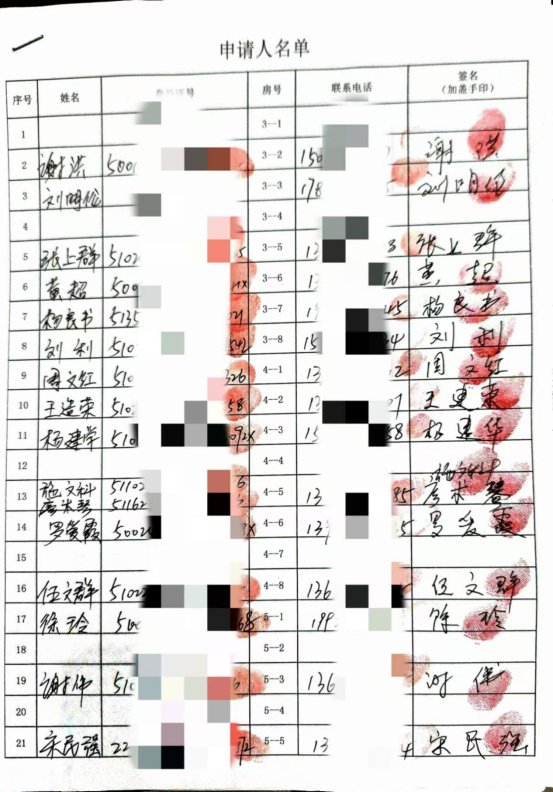 申请人名单
序号 姓名 身份证号 房号 联系电话 签名
（加盖手印）
1 3—1
2 谢洪 500 3—2 150 谢洪
3 刘明伦 3—3 178 刘明伦
4 3—4
5 张上群 5102 5 3—5 13 3 张上群
6 黄超 500 3—6 1 76 黄超
7 杨良书 5135 21 3—7 1 45 杨良书
8 刘利 510 542 3—8 15 34 刘利
9 周文红 510 326 4—1 13 2 周文红
10 王连荣 510 58 4—2 13 07 王连荣
11 杨建华 510 092X 4—3 15 58 杨建华
12 4—4
13 施文科 51102 6 4—5 13 85
51162 3
14 罗 5002 X 4—6 139 5 罗 霞
15 4—7
16 伍文群 5102 4—8 136 伍文群
17 徐玲 500 68 5—1 199 徐玲
18 5—2
19 谢伟 510 5—3 136 谢伟
20 5—4
21 宋民强 22 72 5—5 13 4 宋民强